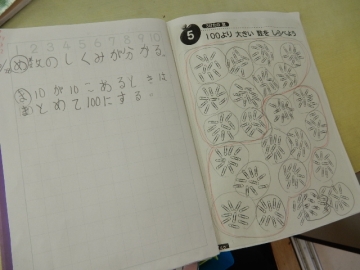 1 2 3 4 5 6 7 8 9 10
め 数のしくみが分かる。
ま 10が10こあるときは
まとめて100にする。
5
100より 大きい 数を しらべよう